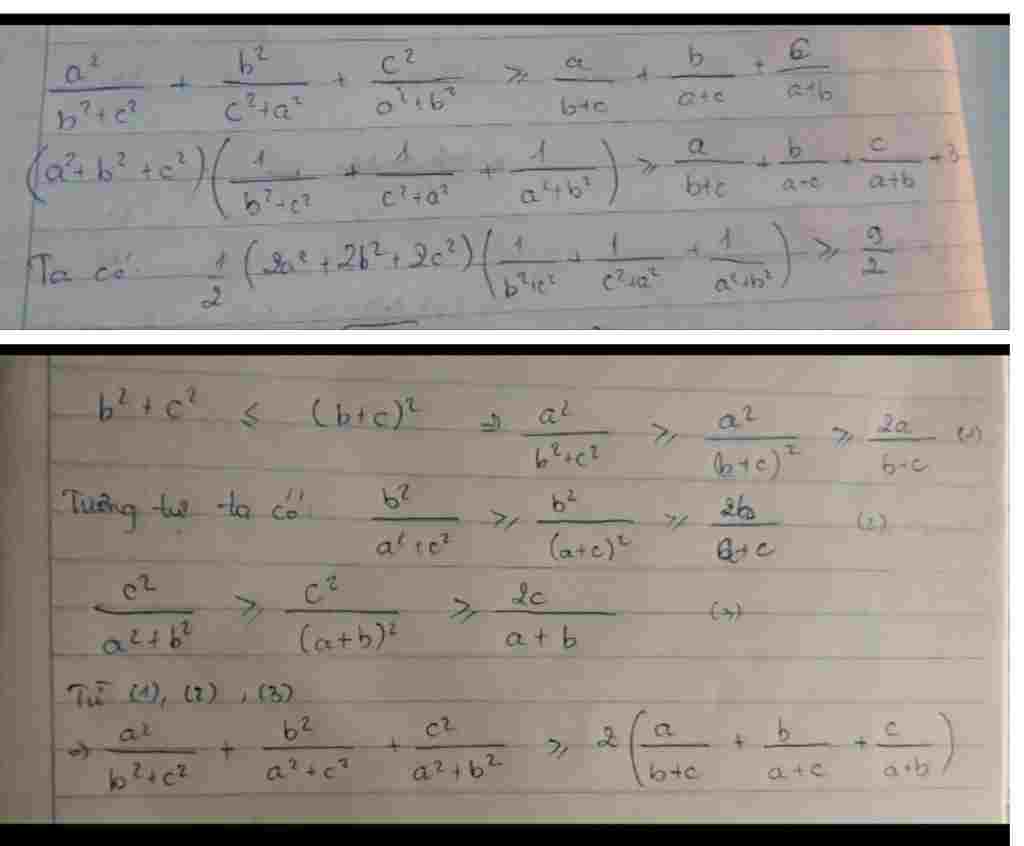 a²/(b²+c²) + b²/(c²+a²) + c²/(a²+b²) ≥ a/(b+c) + b/(a+c) + c/(a+b)
(a²+b²+c²)(1/(b²+c²) + 1/(c²+a²) + 1/(a²+b²)) ≥ a/(b+c) + b/(a+c) + c/(a+b) + 3
Ta có: 1/2 (2a²+2b²+2c²)(1/(b²+c²) + 1/(c²+a²) + 1/(a²+b²)) ≥ 9/2
b²+c² ≤ (b+c)² ⇒ a²/(b²+c²) ≥ a²/(b+c)² ≥ 2a/(b+c) (1)
Tương tự ta có: b²/(a²+c²) ≥ b²/(a+c)² ≥ 2b/(a+c) (2)
c²/(a²+b²) ≥ c²/(a+b)² ≥ 2c/(a+b) (3)
Từ (1), (2), (3)
⇒ a²/(b²+c²) + b²/(a²+c²) + c²/(a²+b²) ≥ 2(a/(b+c) + b/(a+c) + c/(a+b))